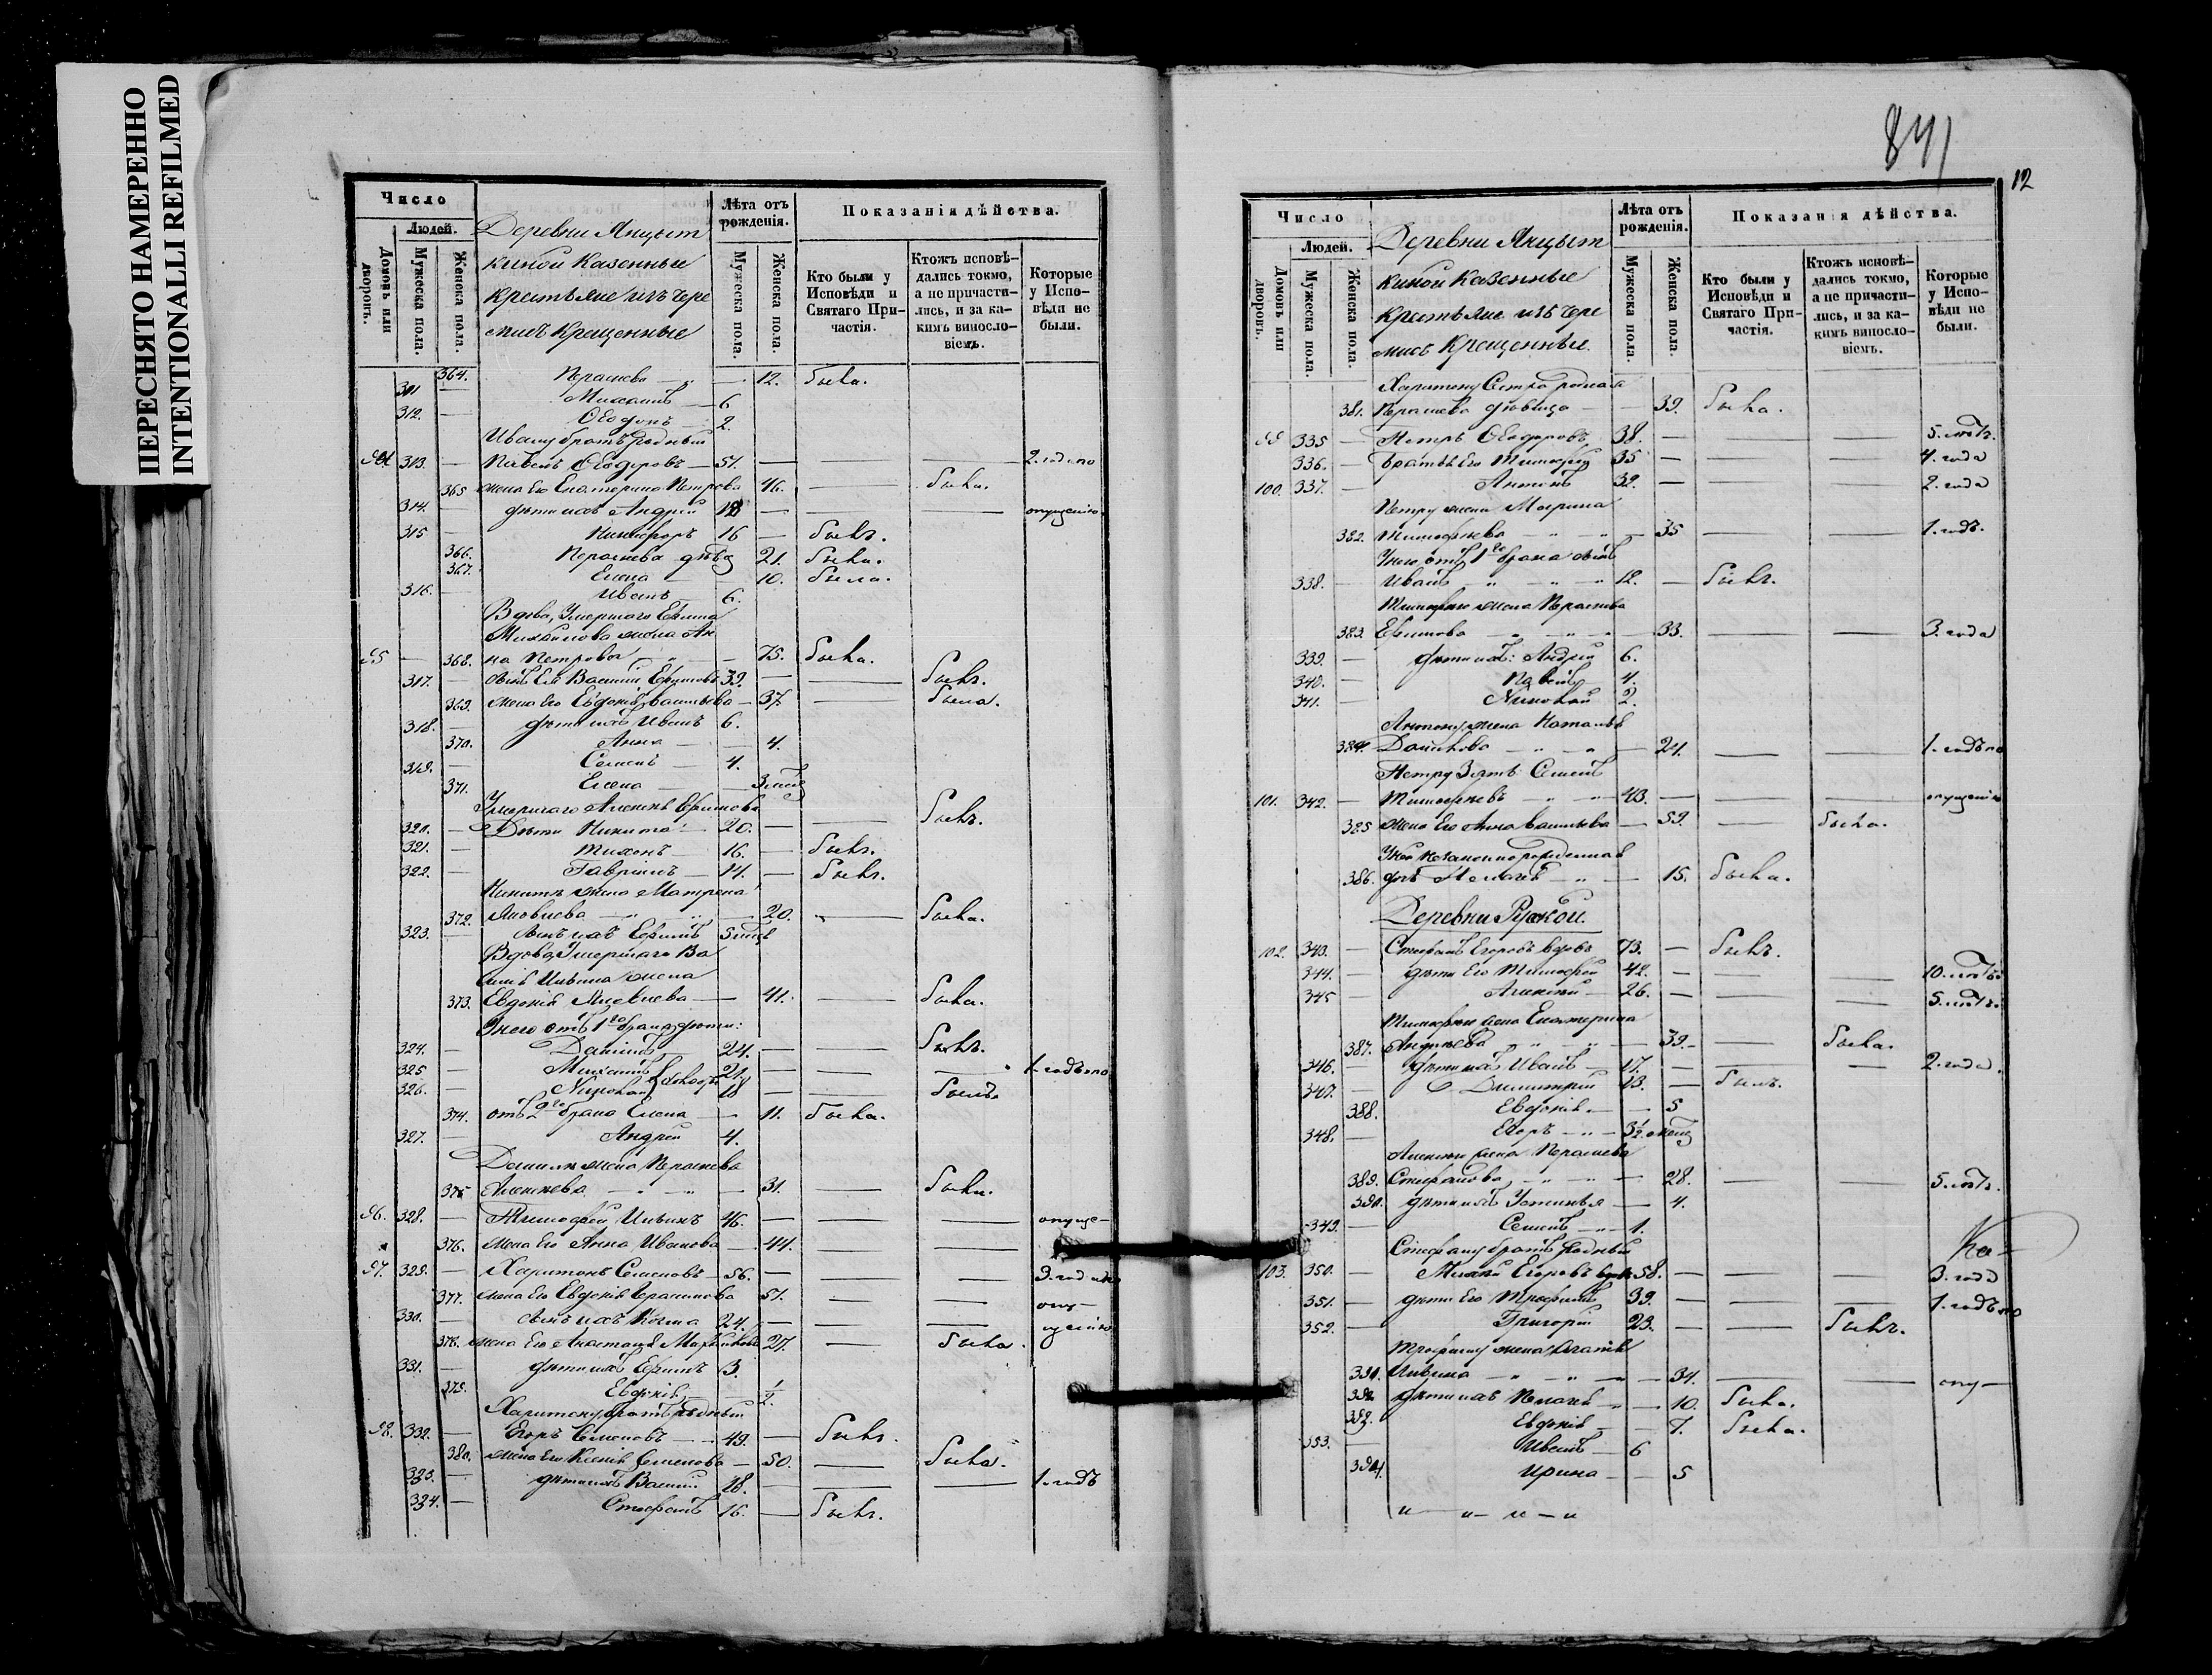 ПЕРЕСНЯТО НАМЕРЕННО
INTENTIONALLI REFILMED
Число
Людей.
Домовъ или дворовъ.
Мужеска пола.
Женска пола.
Деревни Янцыт
киной Казенные
крестьяне изъ чере
мисъ Крещенные
Лѣта отъ рожденія.
Мужеска пола.
Женска пола.
Показанія дѣйства.
Кто были у Исповѣди и Святаго Причастія.
Ктожъ исповѣдались токмо, а не причастились, и за какимъ винословіемъ.
Которые у Исповѣди не были.
364. — — 12. была.
311 — Михаилъ — 6
312. — Ѳеодоръ — 2.
Ивану братъ родный
313. — Павелъ Ѳеодоровъ — 51. — — 2. года по
365 жена Его Екатерина Петрова 46. — была.
314. — дѣти ихъ Андрей 18 — — опущенію
315 — Никифоръ 16 — былъ.
366. дѣвица 21. была.
367. Елена — 10. была.
316. — Иванъ — 6.
Вдова, Умершаго Ефима
Михайлова жена Ан
95 — 368. на Петрова — — 75. была.
317. — сынъ Ея Василій Ефимовъ 39. — — былъ.
369. жена Его Евдокія Васильева — 37 — была.
318. — дѣти ихъ Иванъ 6.
370. Анна — — 4.
319. — Семенъ — 4.
371. Елена — 3 мѣс
Умершаго Алексѣя Ефимова
320. — Дѣти Никита — 20. — — былъ.
321. — Тихонъ — 16. — былъ.
322. — Гавріилъ — 14. — былъ.
Никиты жена Матрена
372. Яковлева — — 20. — была.
323. — сынъ ихъ Ефимъ 5 мѣс
Вдова, Умершаго Ва
силія Ильина жена
373. Евдокія Яковлева — 41. — была.
У него отъ 1го брака дѣти:
324. — Даніилъ — 24. — — былъ.
325 — Михаилъ 21. — — 1. годъ по
326. — Николай 18 — — былъ
374. отъ 2го брака Елена — — 11. была.
327. — Андрей 4.
375 Алексѣева — — 31. — была.
96. 328. — Тимофей Ильинъ 46. — — — опуще—
376. жена Его Анна Иванова — 44. — —
97. 329. — Харитонъ Семеновъ — 56. — — —
377. жена Его Евдокія Герасимова 51. — — опу—
330. — сынъ ихъ Козма 24. — — щенію
378. жена Его Анастасія 27. — была.
331. — дѣти ихъ Ефимъ 3.
379. Евдокія — ½.
Харитону братъ родный
98. 332. — Егоръ Семеновъ — 49. — былъ.
380. жена Его Ксенія Семенова — 50. — была.
333. — дѣти ихъ Василій 18. — — — 1. годъ
334. — Стефанъ 16. — былъ.
841
12
Число
Людей.
Домовъ или дворовъ.
Мужеска пола.
Женска пола.
Деревни Янцыт
киной Казенные
крестьяне изъ чере
мисъ Крещенные.
Лѣта отъ рожденія.
Мужеска пола.
Женска пола.
Показанія дѣйства.
Кто были у Исповѣди и Святаго Причастія.
Ктожъ исповѣдались токмо, а не причастились, и за какимъ винословіемъ.
Которые у Исповѣди не были.
Харитону Сестра родная
381. дѣвица — — 39. была.
99 335 — Петръ Ѳеодоровъ 38. — — — 5. лѣтъ.
336. — братья Его Тимофей 35 — — — 4. года
100. 337. — Антонъ 32. — — — 2. года
Петру жена Марина
382. Тимофеева — — 35 — — 1. годъ.
У него отъ 1го брака сынъ
338. — Иванъ — 12. — былъ.
383. Ефимова — — 33. — — 3. года
339. — дѣти ихъ: Андрей 6.
340. — Павелъ 4.
341. — Николай 2.
Антону жена Наталья
384. Данилова — — 24. — — 1. годъ по
Петру Зять Семенъ
101. 342. — Тимофеевъ — 43. — — — опущенію
385 жена Его Анна Васильева — 59. — была.
У нея незаконнорожденная
386. дочь Пелагея — — 15. была.
Деревни
102. 343. — Стефанъ Егоровъ вдовъ 73. — былъ.
344. — дѣти Его Тимофей 42. — — — 10. лѣтъ
345 — Алексѣй — 26. — — — 5. лѣтъ.
Тимофею жена Екатерина
387. Андреева — — 39. — была.
346. — дѣти ихъ Иванъ — 17. — — — 2. года.
347. — Димитрій 13. — былъ.
388. Евдокія — — 5
348. — Егоръ — 3½ мѣс
389. Стефанова — — 28. — — 5. лѣтъ.
390. дѣти ихъ Устинья — 4.
349. — Семенъ — 1.
Стефану братъ родный
103. 350. — Егоровъ 58. — — — 3. года
351. — дѣти Его Трофимъ 39. — — — 1. годъ по
352. — Григорій 23. — — былъ.
Трофиму жена
391. Ильина — — 34. — — опу—
392 дѣти ихъ Пелагея — — 10. была.
393. Евдокія — 7. была.
353. — Иванъ — 6
394. Ирина — — 5